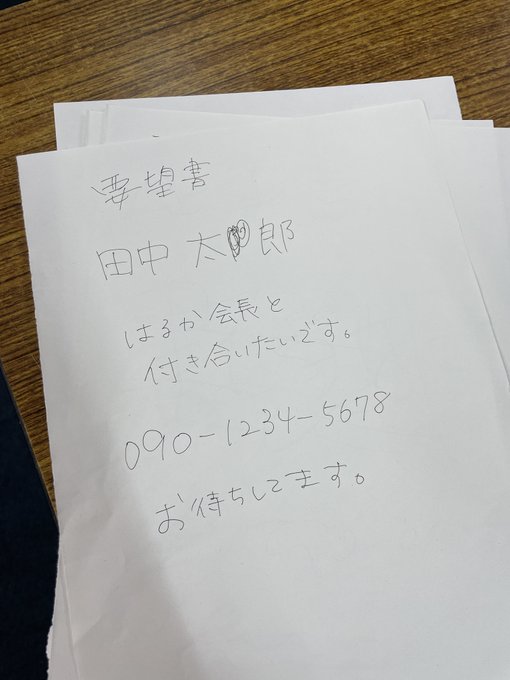 要望書
田中 太郎
はるか会長と
付き合いたいです。
090-1234-5678
お待ちしてます。